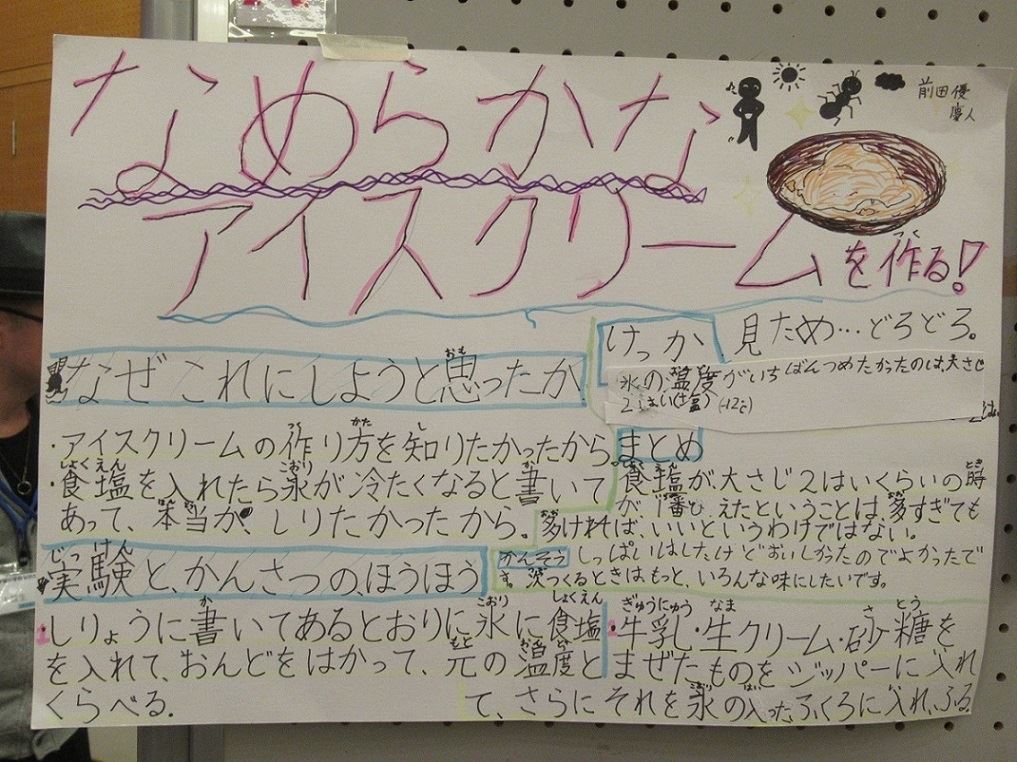 なめらかな
アイスクリームを作る!
前田優
なぜこれにしようと思ったか
・アイスクリームの作り方を知りたかったから。
・食塩を入れたら氷が冷たくなると書いて
あって、本当か、しりたかったから。
実験と、かんさつの、ほうほう
しりょうに書いてあるとおりに氷に食塩
を入れて、おんどをはかって、元の温度と
くらべる.
牛乳・生クリーム・砂糖を
まぜたものをジッパーに入れ
て、さらにそれを氷の入ったふくろに入れ、ふる.
けっか
見ため…どろどろ。
氷の温度がいちばんつめたかったのは、大さじ
2はい(塩)(-12℃)
まとめ
食塩が、大さじ2はいくらいの時
が、1番ひえたということは、多すぎても
多ければ、いいというわけではない。
かんそう
しっぱいはしたけどおいしかったのでよかったで
す。次つくるときはもっと、いろんな味にしたいです。